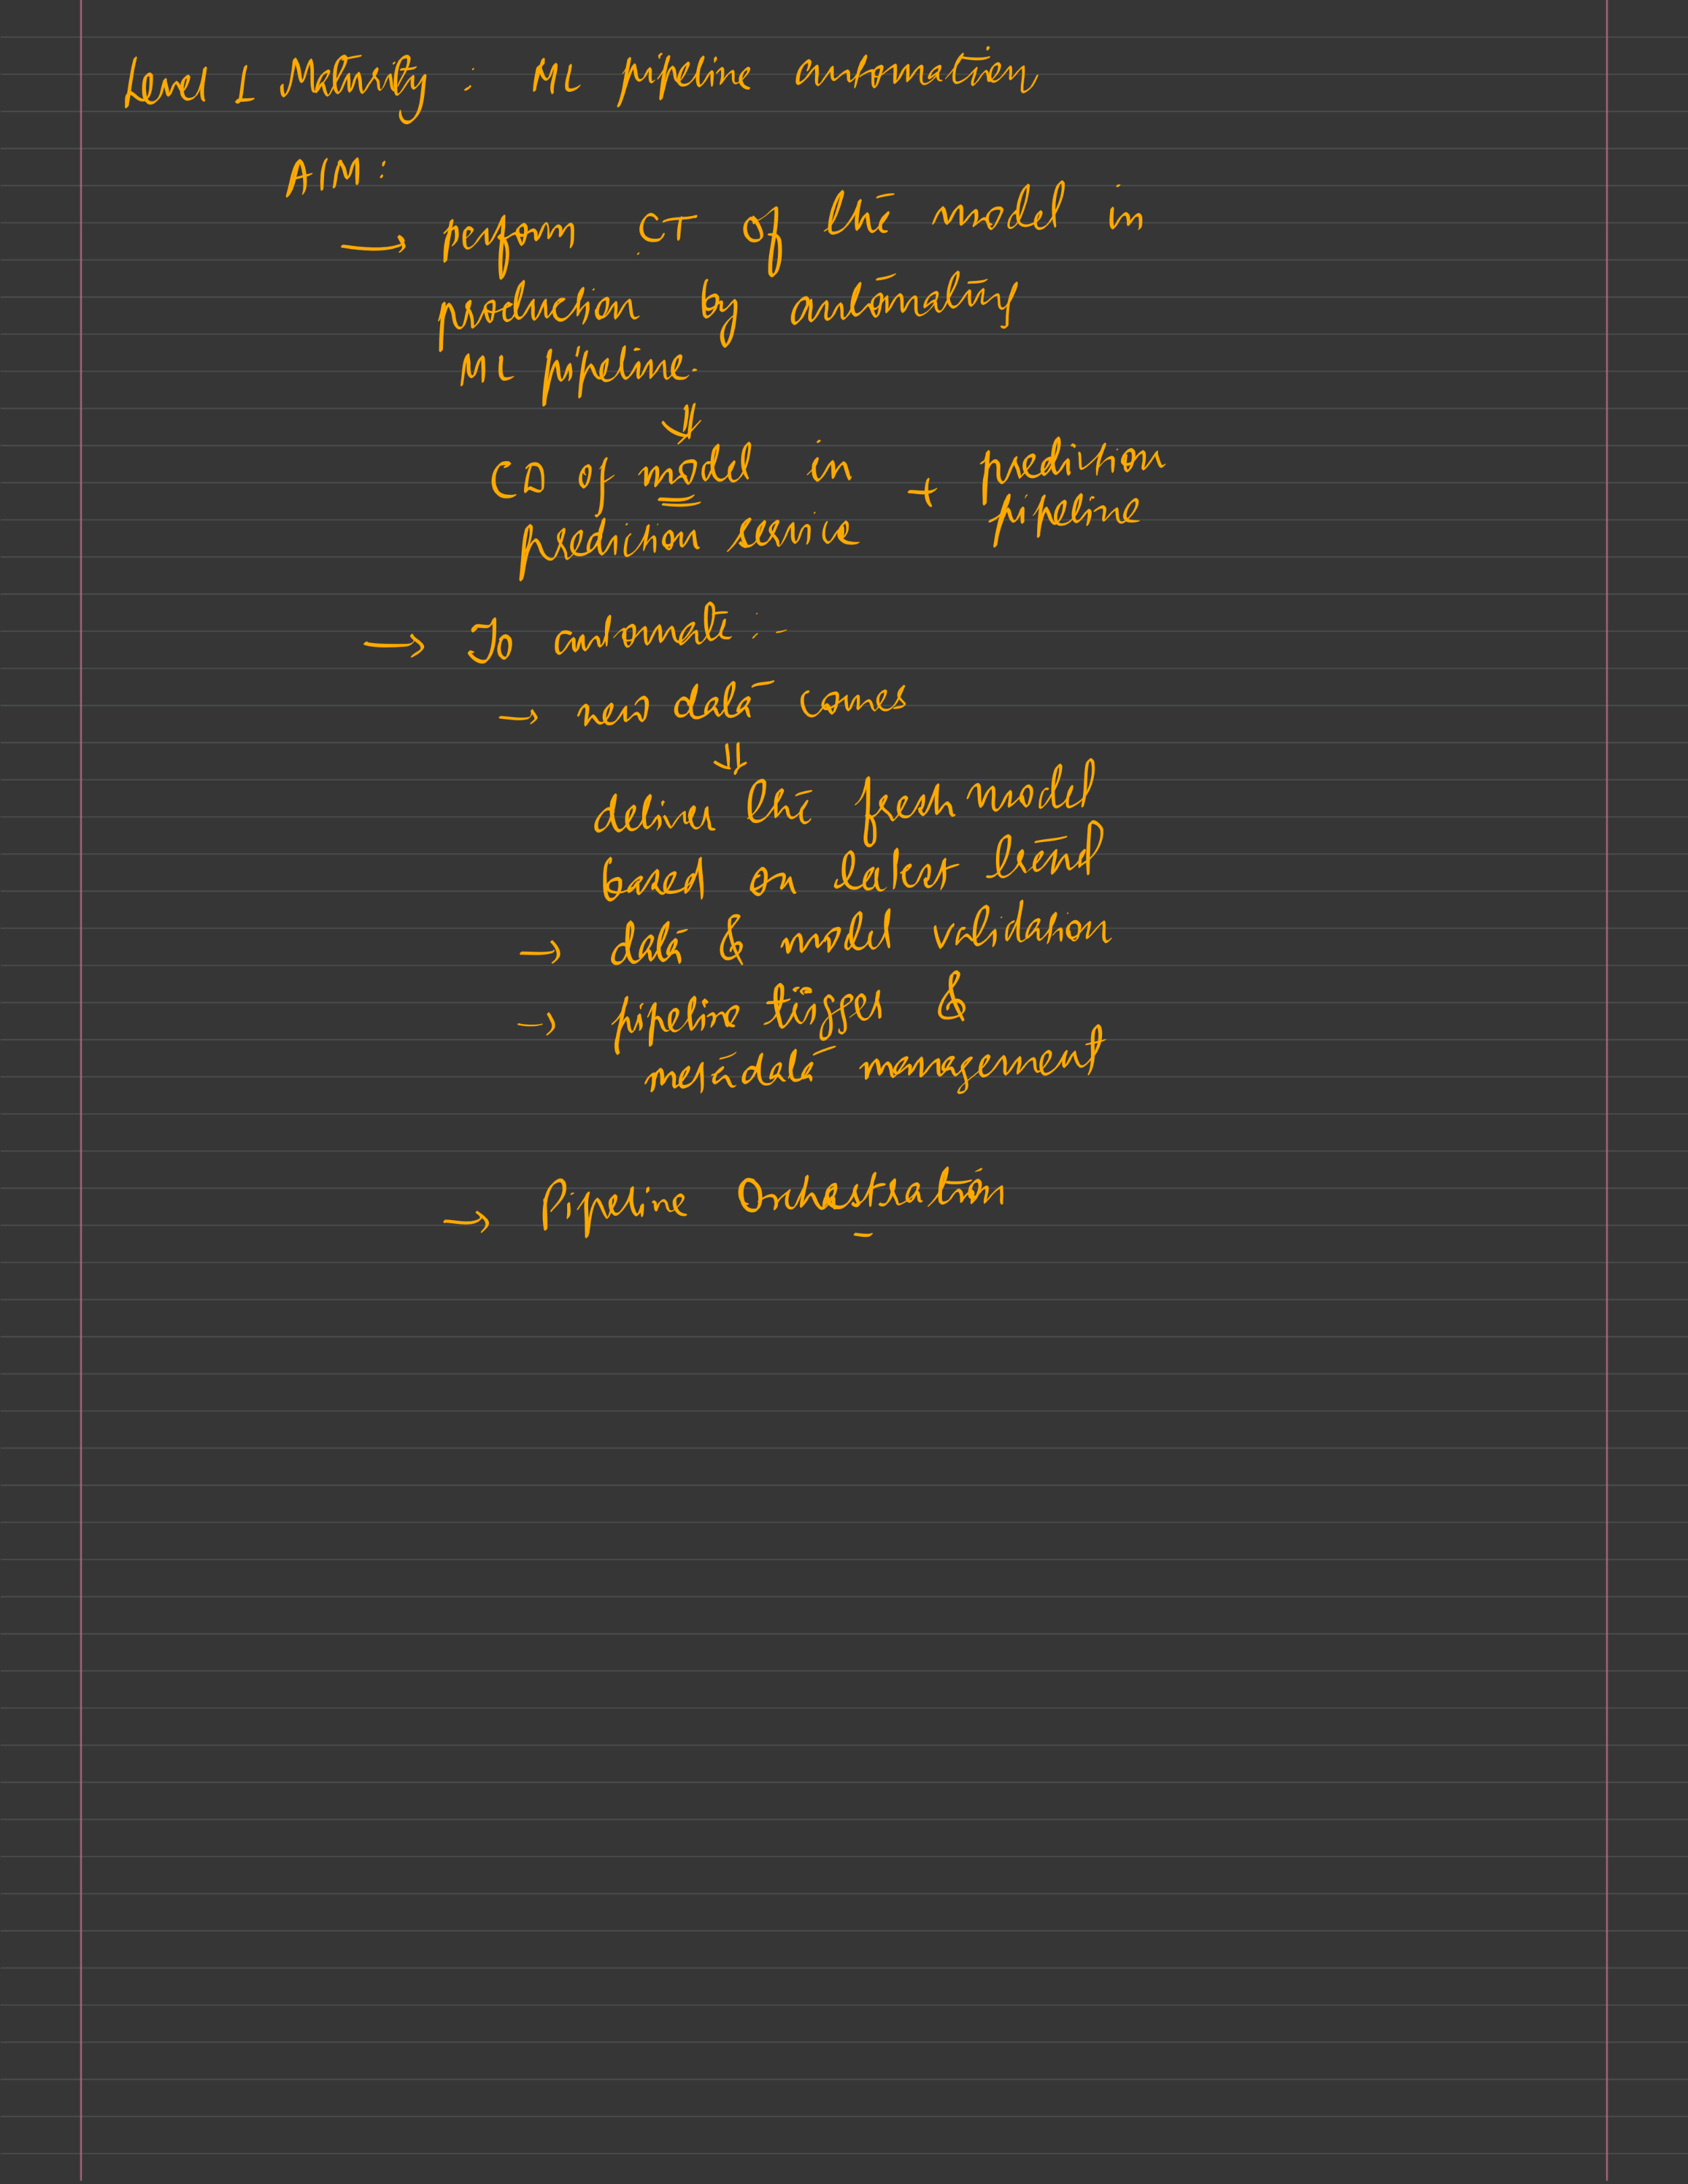 Level 1 Maturity : ML pipeline automation
AIM :
→ perform CT of the model in
production by automating
ML pipeline.
CD of model in + prediction
prediction service pipeline
→ To automate :-
→ new data comes
deliver the fresh model
based on latest trend
→ data & model validation
→ pipeline trigger &
metadata management
→ Pipeline Orchestration